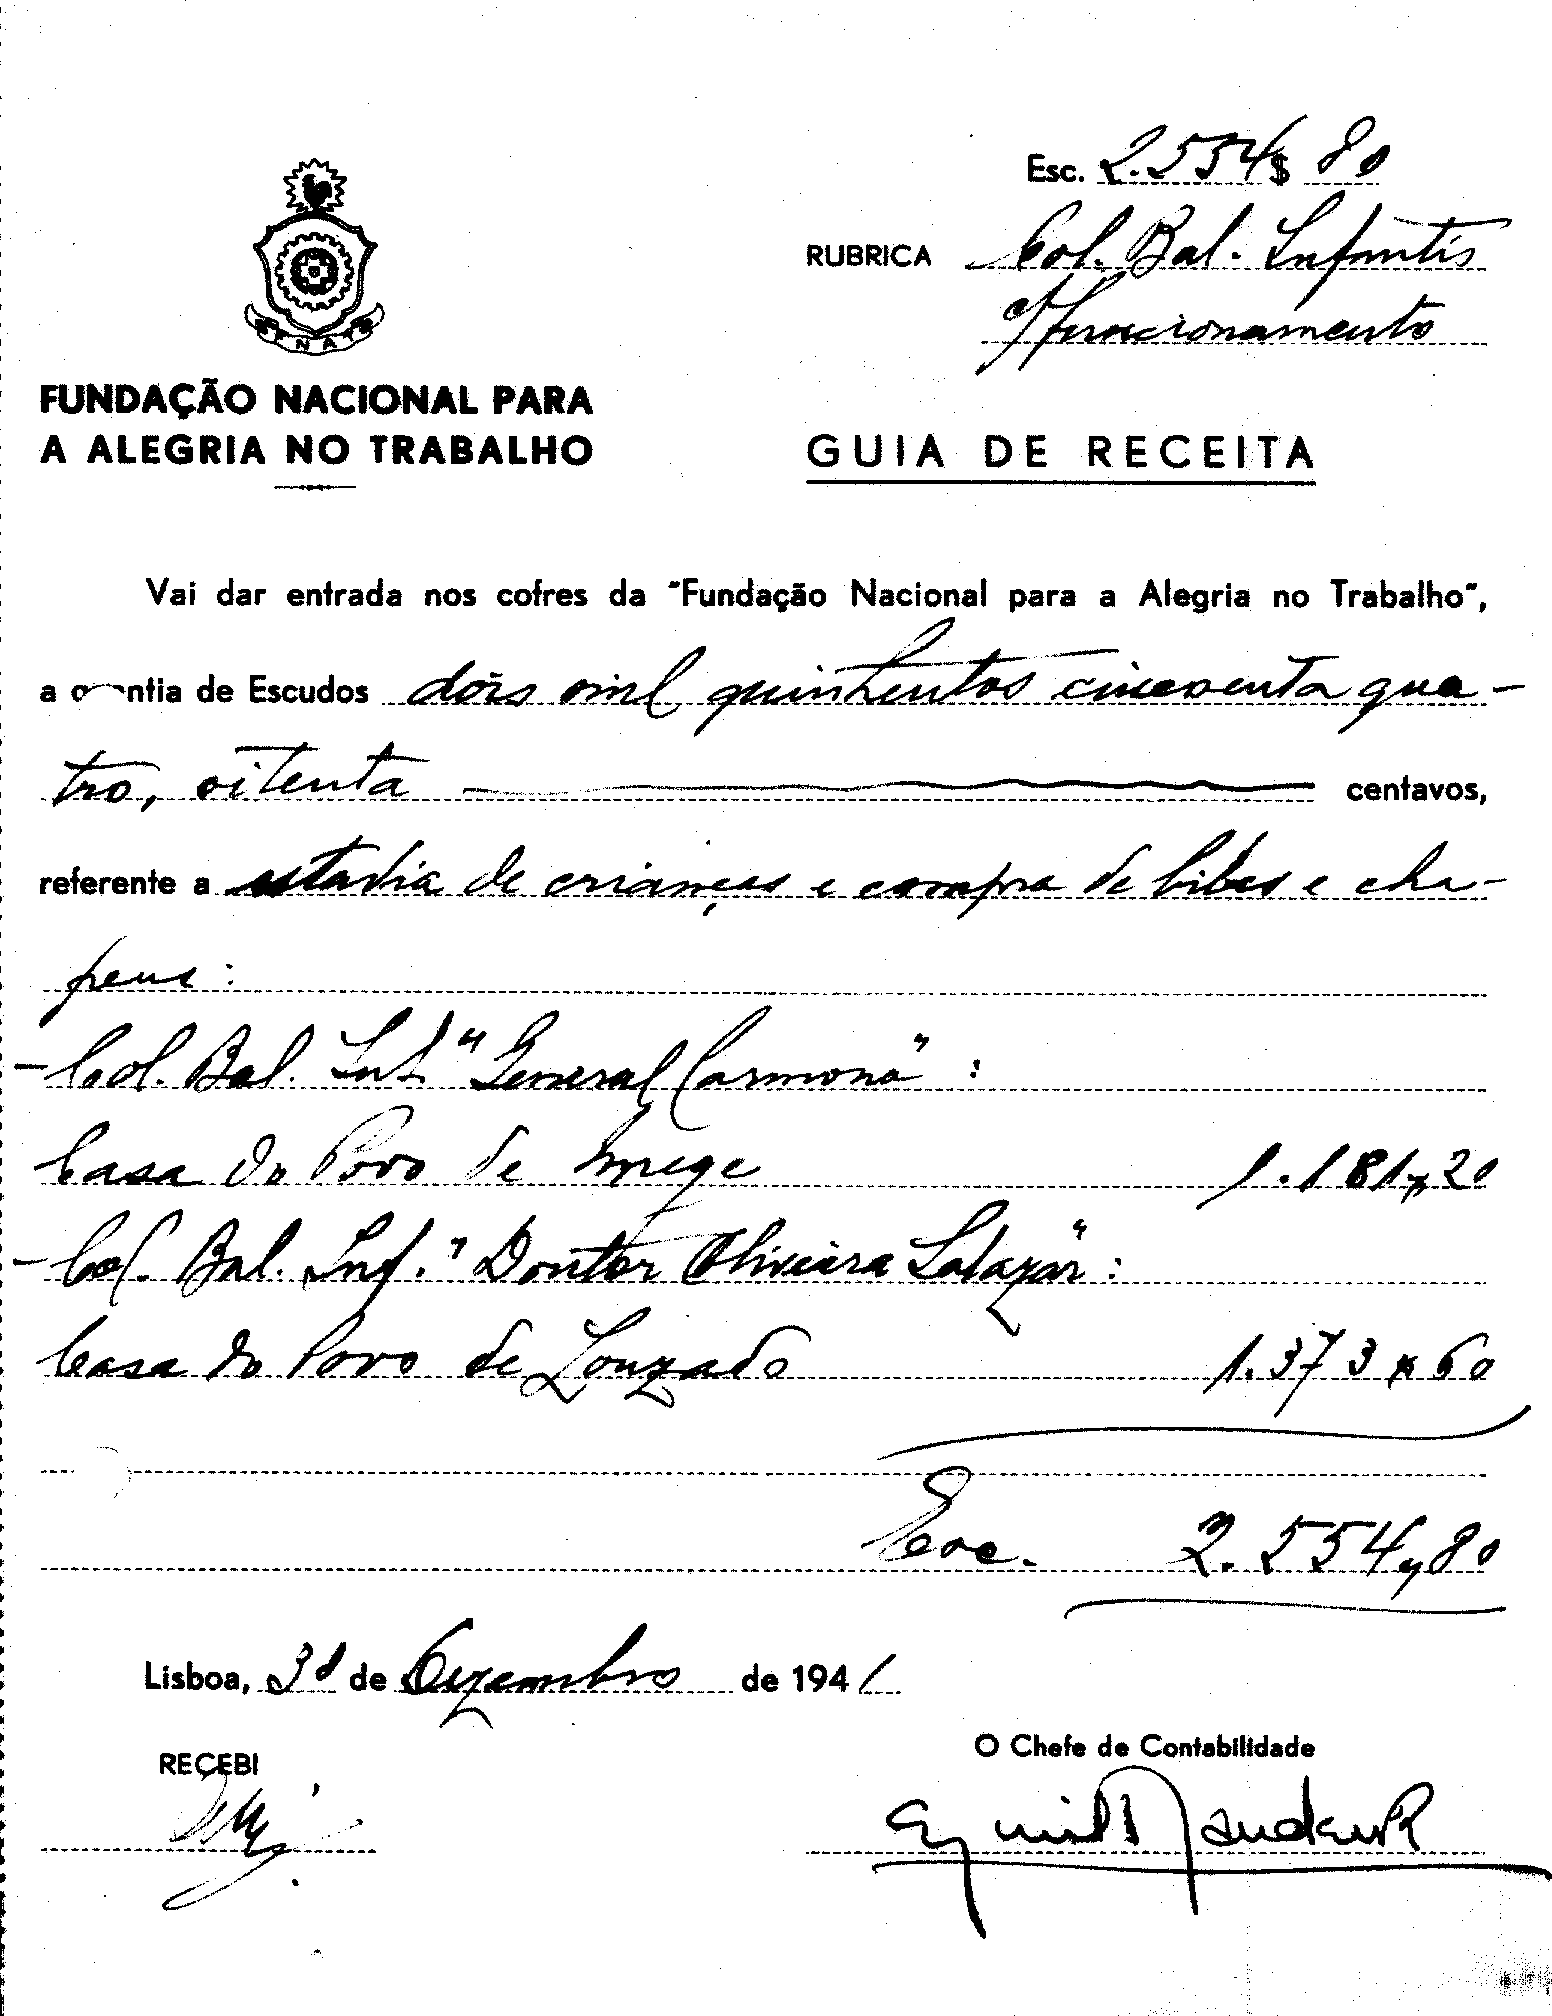 Esc. 2.554$80
RUBRICA Col. Bal. Infantis
c/funcionamento
FENAT
FUNDAÇÃO NACIONAL PARA
A ALEGRIA NO TRABALHO
GUIA DE RECEITA
Vai dar entrada nos cofres da "Fundação Nacional para a Alegria no Trabalho",
a quantia de Escudos dois mil quinhentos cincoenta qua-
tro, oitenta centavos,
referente a estadia de crianças e compra de bibes e cha-
peus:
- Col. Bal. Inf. "General Carmona":
Casa do Povo de 1.181$20
- Col. Bal. Inf. "Doutor Oliveira Salazar":
Casa do Povo de Louzado 1.373$60
Esc. 2.554$80
Lisboa, de Dezembro de 1941
RECEBI
O Chefe de Contabilidade